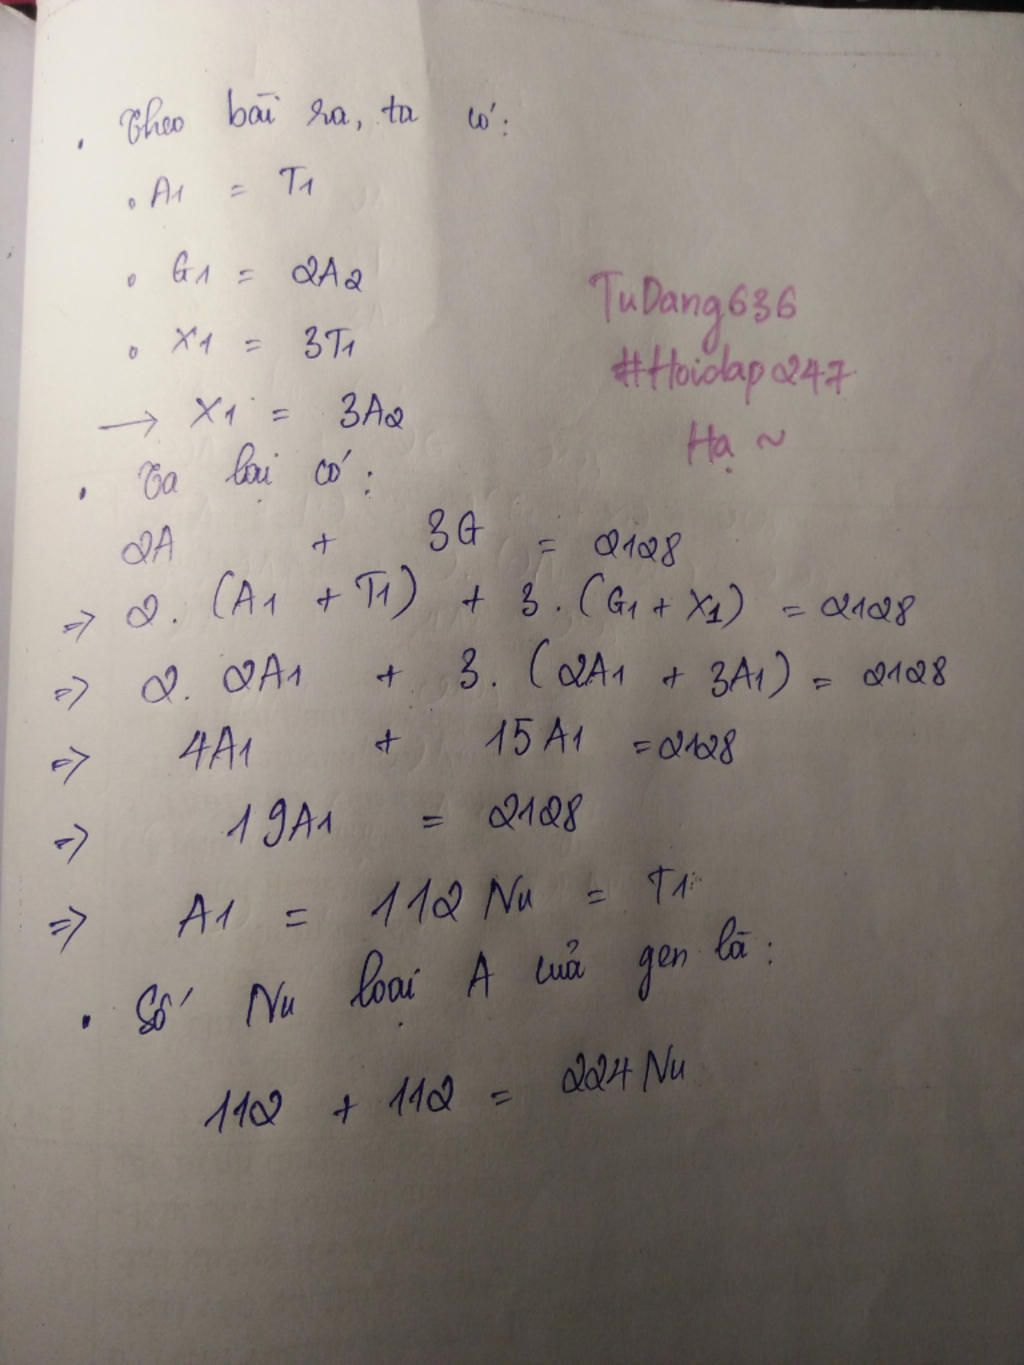 . Theo bài ra, ta có:
• A1 = T1
• G1 = 2A2
• X1 = 3T1
→ X1 = 3A2
. Ta lại có:
2A + 3G = 2128
=> 2. (A1 + T1) + 3. (G1 + X1) = 2128
=> 2. 2A1 + 3. (2A1 + 3A1) = 2128
=> 4A1 + 15A1 = 2128
=> 19A1 = 2128
=> A1 = 112 Nu = T1
. Số Nu loại A của gen là:
112 + 112 = 224 Nu
TuDang636
#Hoidap247
Hạ ~